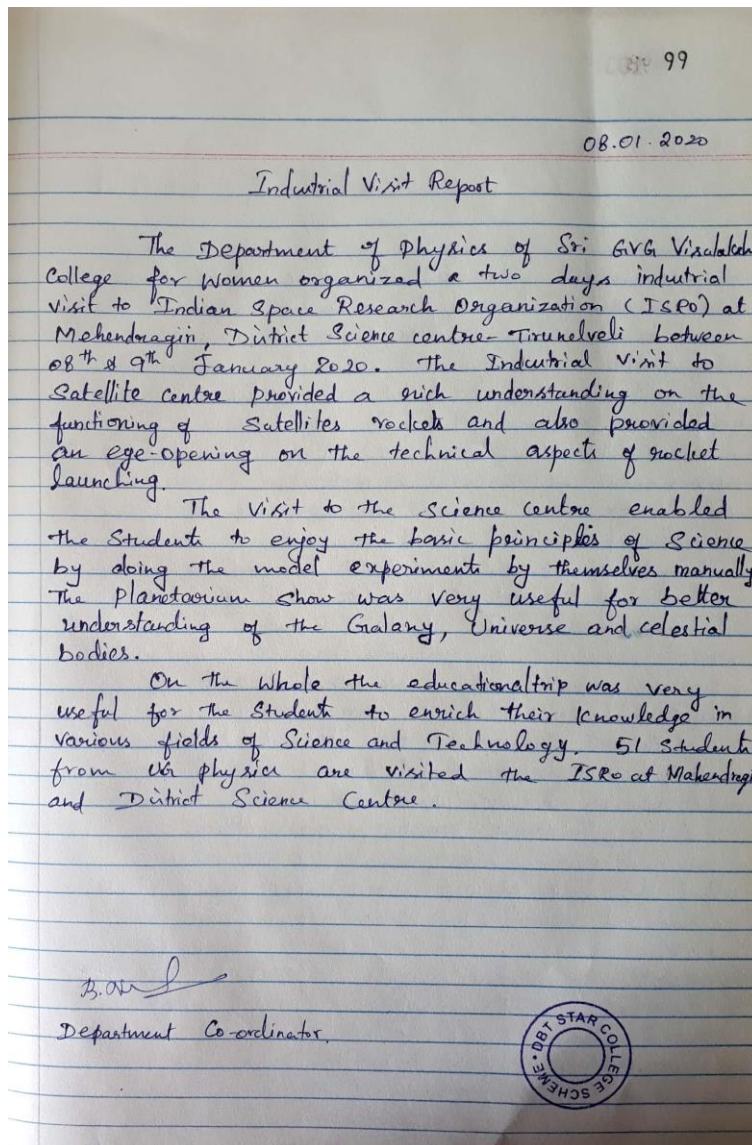 99
08.01.2020
Industrial Visit Report
The Department of Physics of Sri GVG Visalaksh
College for Women organized a two days industrial
visit to Indian Space Research Organization (ISRO) at
Mehendragiri, District Science centre- Tirunelveli between
08th & 9th January 2020. The Industrial Visit to
Satellite centre provided a rich understanding on the
functioning of Satellites rockets and also provided
an eye-opening on the technical aspects of rocket
launching.
The visit to the science centre enabled
the Students to enjoy the basic principles of Science
by doing the model experiments by themselves manually
The Planetarium show was very useful for better
understanding of the Galaxy, Universe and celestial
bodies.
On the whole the educational trip was very
useful for the Students to enrich their knowledge in
various fields of Science and Technology. 51 Students
from UG physics are visited the ISRO at Mahendragi
and District Science Centre.
Department Co-ordinator.
DBT STAR COLLEGE SCHEME